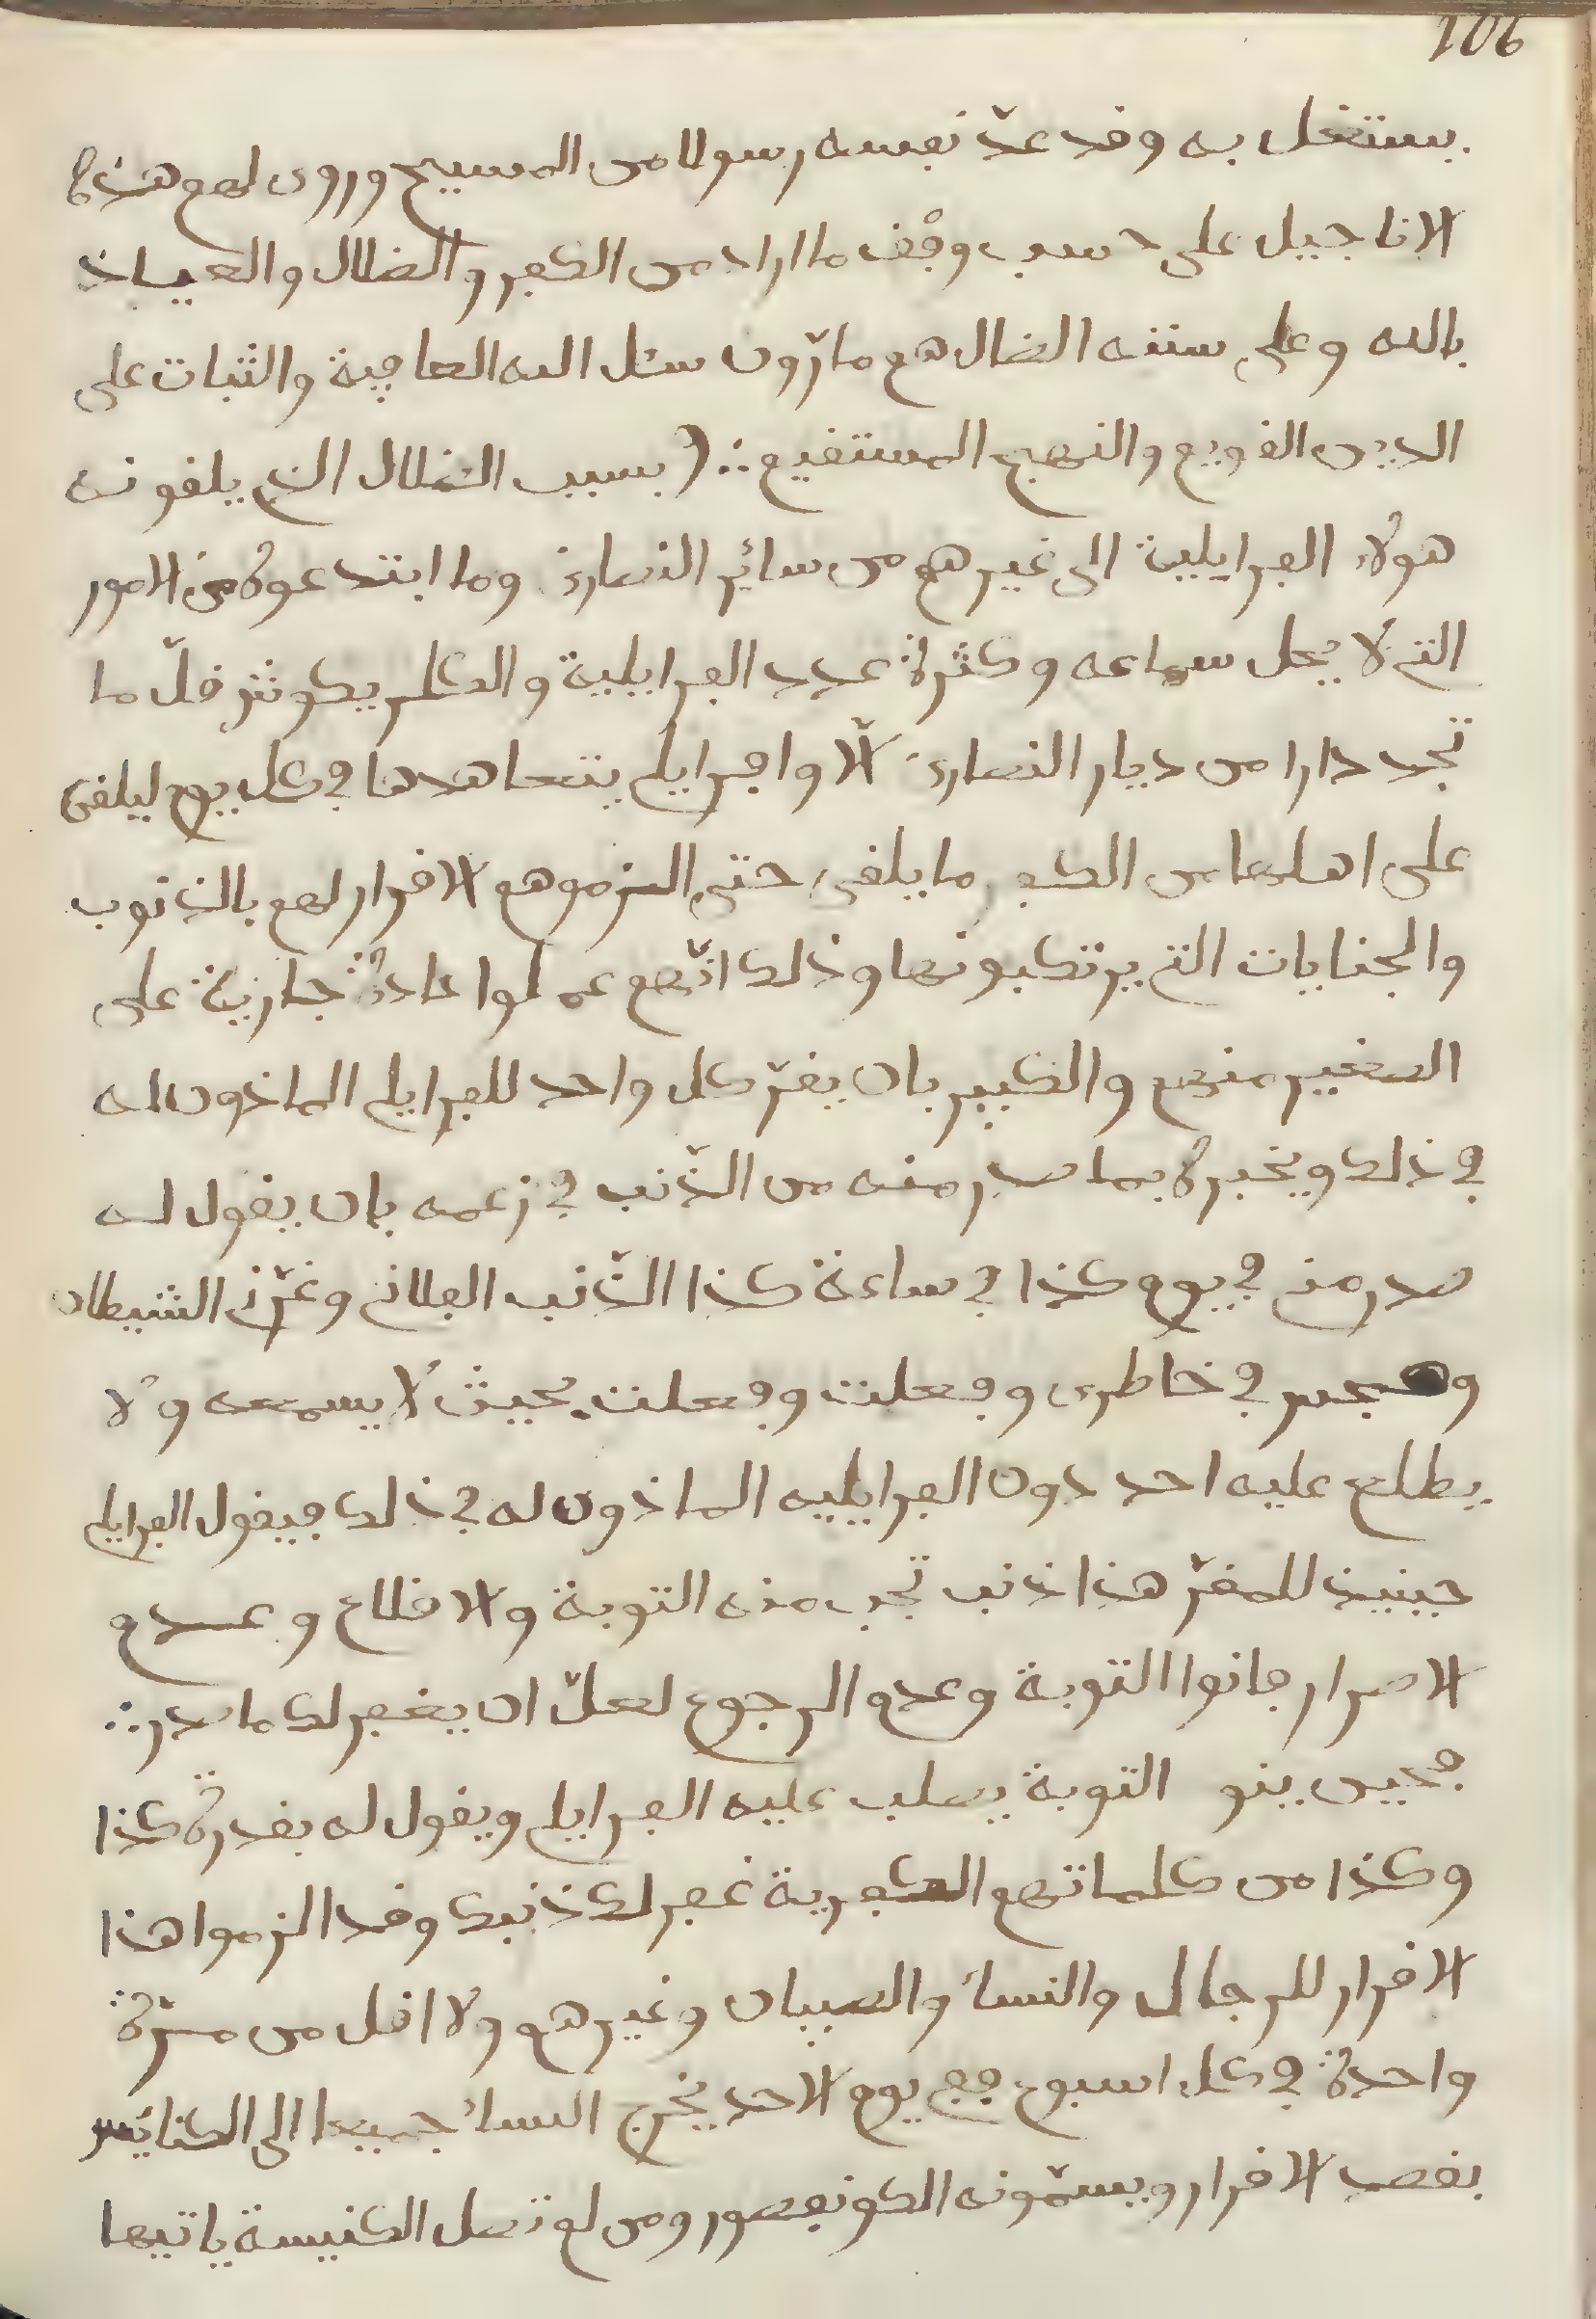 106
يشتغل به وقد عدّ نفسه رسولا من المسيح وروى لهم هذه
الاناجيل على حسب وفق ما اراد من الكفر والضلال والعياذ
بالله وعلى سننه الضال هم مارّون نسئل الله العافية والثبات على
الدين القويم والنهج المستقيم ∴ (بسبب الضلال الذي يلقونه
هولاء الفرايلية الى غيرهم من سائر النصارى وما ابتدعوه من الامور
التي لا يحل سماعه وكثرة عدد الفرايلية والفكلريكوتش قلّ ما
تجد دارا من ديار النصارى الّا وافرايلي يتعاهدها في كل يوم ليلقى
على اهلها من الكفر ما يلقى حتى الزموهم الاقرار لهم بالذنوب
والجنايات التي يرتكبونها وذلك انّهم عملوا عادة جارية على
الصغير منهم والكبير بان يقرّ كل واحد للفرايلي الماذون له
في ذلك ويخبره بما صدر منه من الذّنب في زعمه بان يقول له
صدر مني في يوم كذا في ساعة كذا الذّنب الفلاني وغرّني الشيطان
وهجس في خاطري وفعلت وفعلت بحيث لا يسمعه ولا
يطلع عليه احد دون الفرايليه الماذون له في ذلك فيقول الفرايلي
حينيذ للمقرّ هذا ذنب تجب منه التوبة والاقلاع وعدم
الاصرار فانوا التوبة وعدم الرجوع لعلّ ان يغفر لك ما صدر ∴
فحين ينو التوبة يصلب عليه الفرايلي ويقول له بقدرة كذا
وكذا من كلماتهم الكفرية غفر لك ذنبك وقد الزموا هذا
الاقرار للرجال والنساء والصبيان وغيرهم ولا اقل من مرّة
واحدة في كل اسبوع ففي يوم الاحد يخرج النساء جميعا الى الكنائس
بقصد الاقرار ويسمّونه الكونفصور ومن لم تصل الكنيسة ياتيها